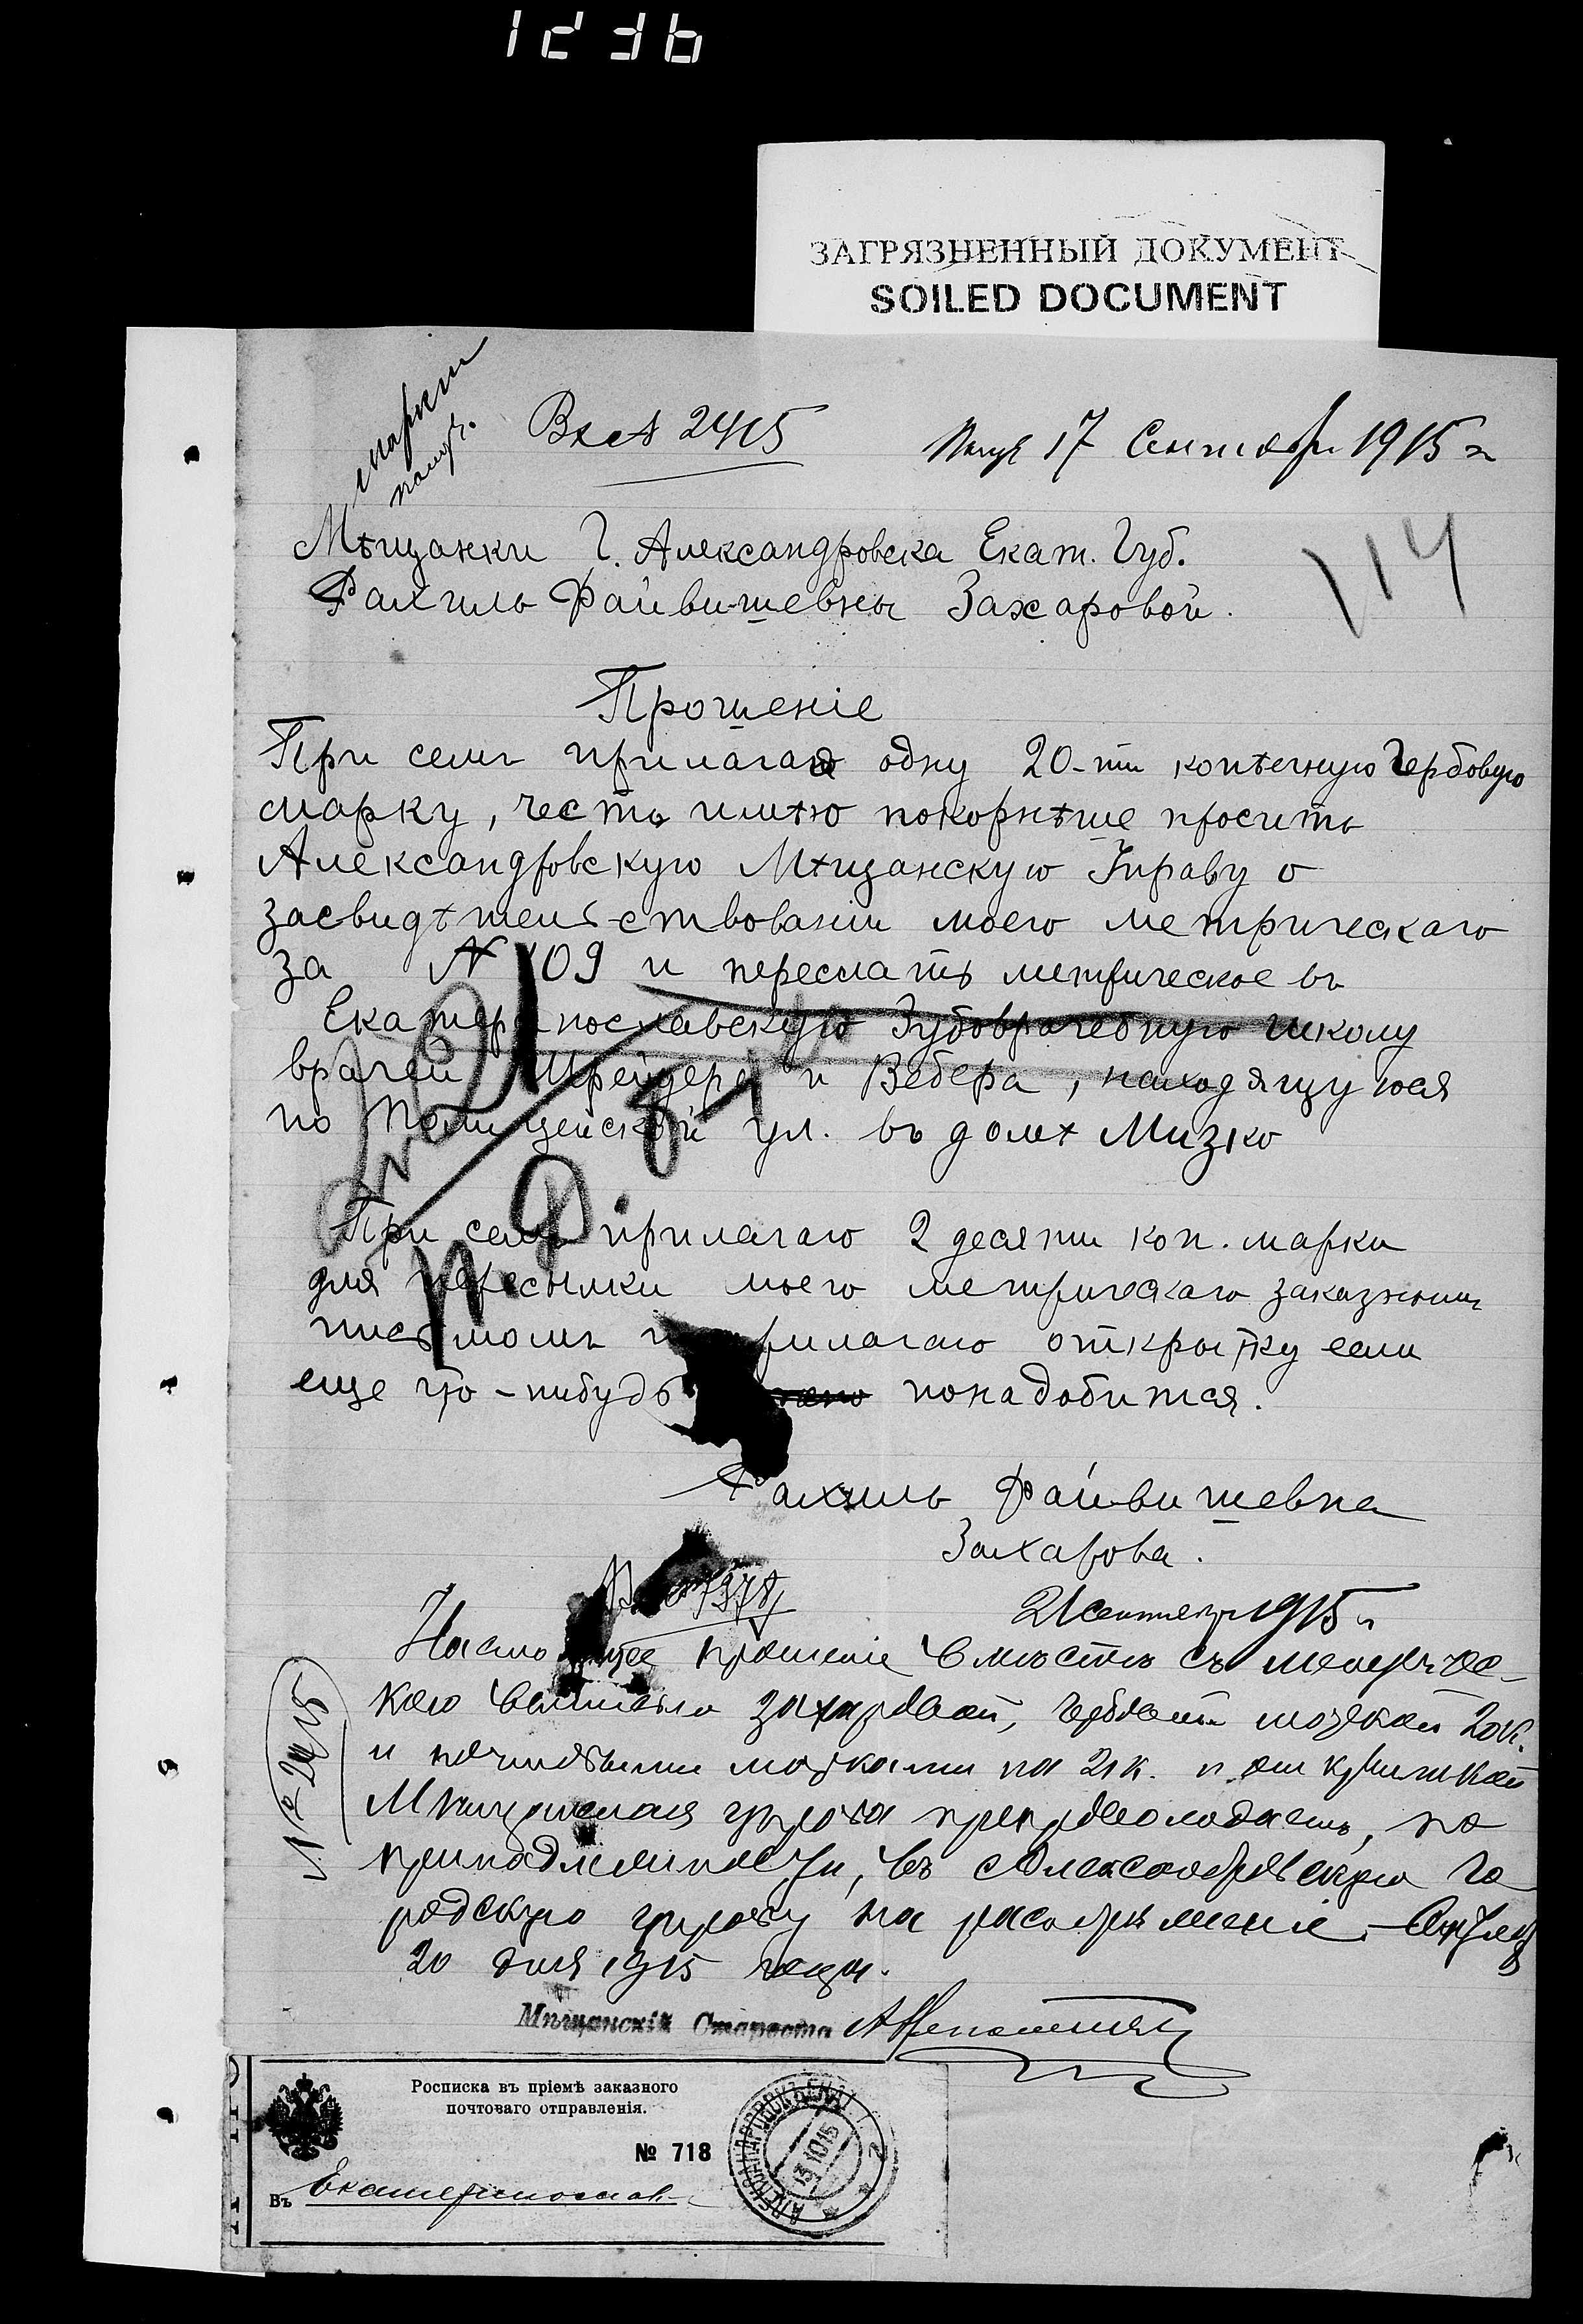 1236
ЗАГРЯЗНЕННЫЙ ДОКУМЕНТ
SOILED DOCUMENT
марки
получ.
Вх № 2415
Получ 17 Сентября 1915 г
114
Мѣщанки Г. Александровска Екат. Губ.
Рахиль Файвишевны Захаровой.
Прошеніе
При семъ прилагая одну 20-ти копѣечную Гербовую
марку, честь имѣю покорнѣше просить
Александровскую Мѣщанскую Управу о
засвидѣтельствованіи моего метрическаго
за № 109 и переслать метрическое въ
Екатеринославскую Зубоврачебную школу
врачей Шрейдера и Вебера, находящуюся
по Полицейской ул. въ домѣ Мизко
При семъ прилагаю 2 десяти коп. марки
для пересылки моего метрическаго заказнымъ
письмомъ и прилагаю открытку если
еще что-нибудь понадобится.
Рахиль Файвишевна
Захарова.
1978
21 сентября 1915 г
Настоящее прошеніе вмѣстѣ съ метричес-
кою Захаровой, гербовой маркой 20 к.
и почтовыми марками на 21 к. и открыткой
Мѣщанская управа препровождаетъ, по
принадлежности, въ Александровскую Го
родскую управу на распоряженіе.
20 дня 1915 года.
№ 2415
Мѣщанскій Староста
Росписка въ пріемѣ заказного
почтоваго отправленія.
№ 718
Въ Екатеринослав
АЛЕКСАНДРОВСКЪ ЕКАТ. Г.
13 10 15